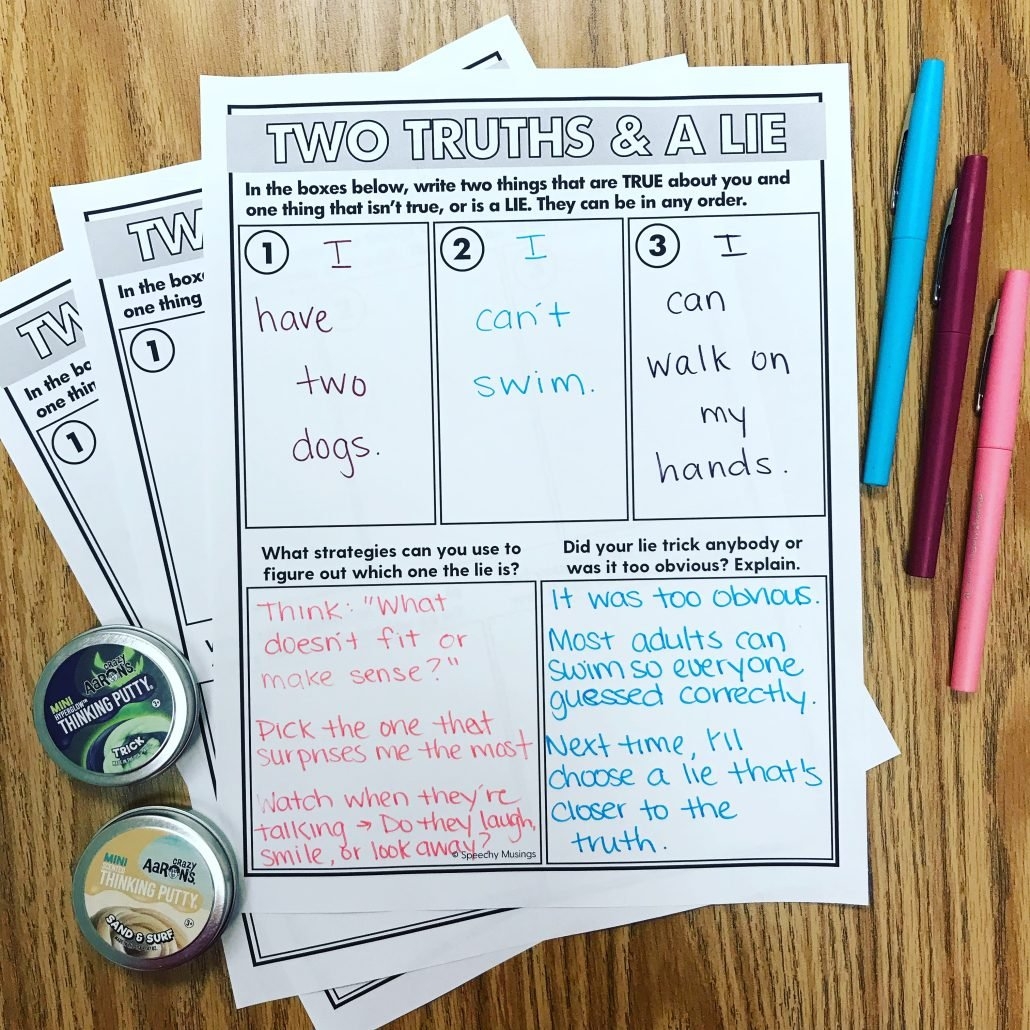 TWO TRUTHS & A LIE
In the boxes below, write two things that are TRUE about you and
one thing that isn't true, or is a LIE. They can be in any order.
1 I
have
two
dogs.
2 I
can't
swim.
3 I
can
walk on
my
hands.
What strategies can you use to
figure out which one the lie is?
Think: "What
doesn't fit or
make sense?"
Pick the one that
surprises me the most
Watch when they're
talking → Do they laugh,
smile, or look away?
© Speechy Musings
Did your lie trick anybody or
was it too obvious? Explain.
It was too obvious.
Most adults can
swim so everyone
guessed correctly.
Next time, I'll
choose a lie that's
closer to the
truth.
TW
In the box
one thing
1
TW
In the bo
one thin
1
CRAZY
AARON'S
MINI
HYPERGLOW
THINKING PUTTY
TRICK
3+
CRAZY
AARON'S
MINI
THINKING PUTTY
SAND & SURF
3+